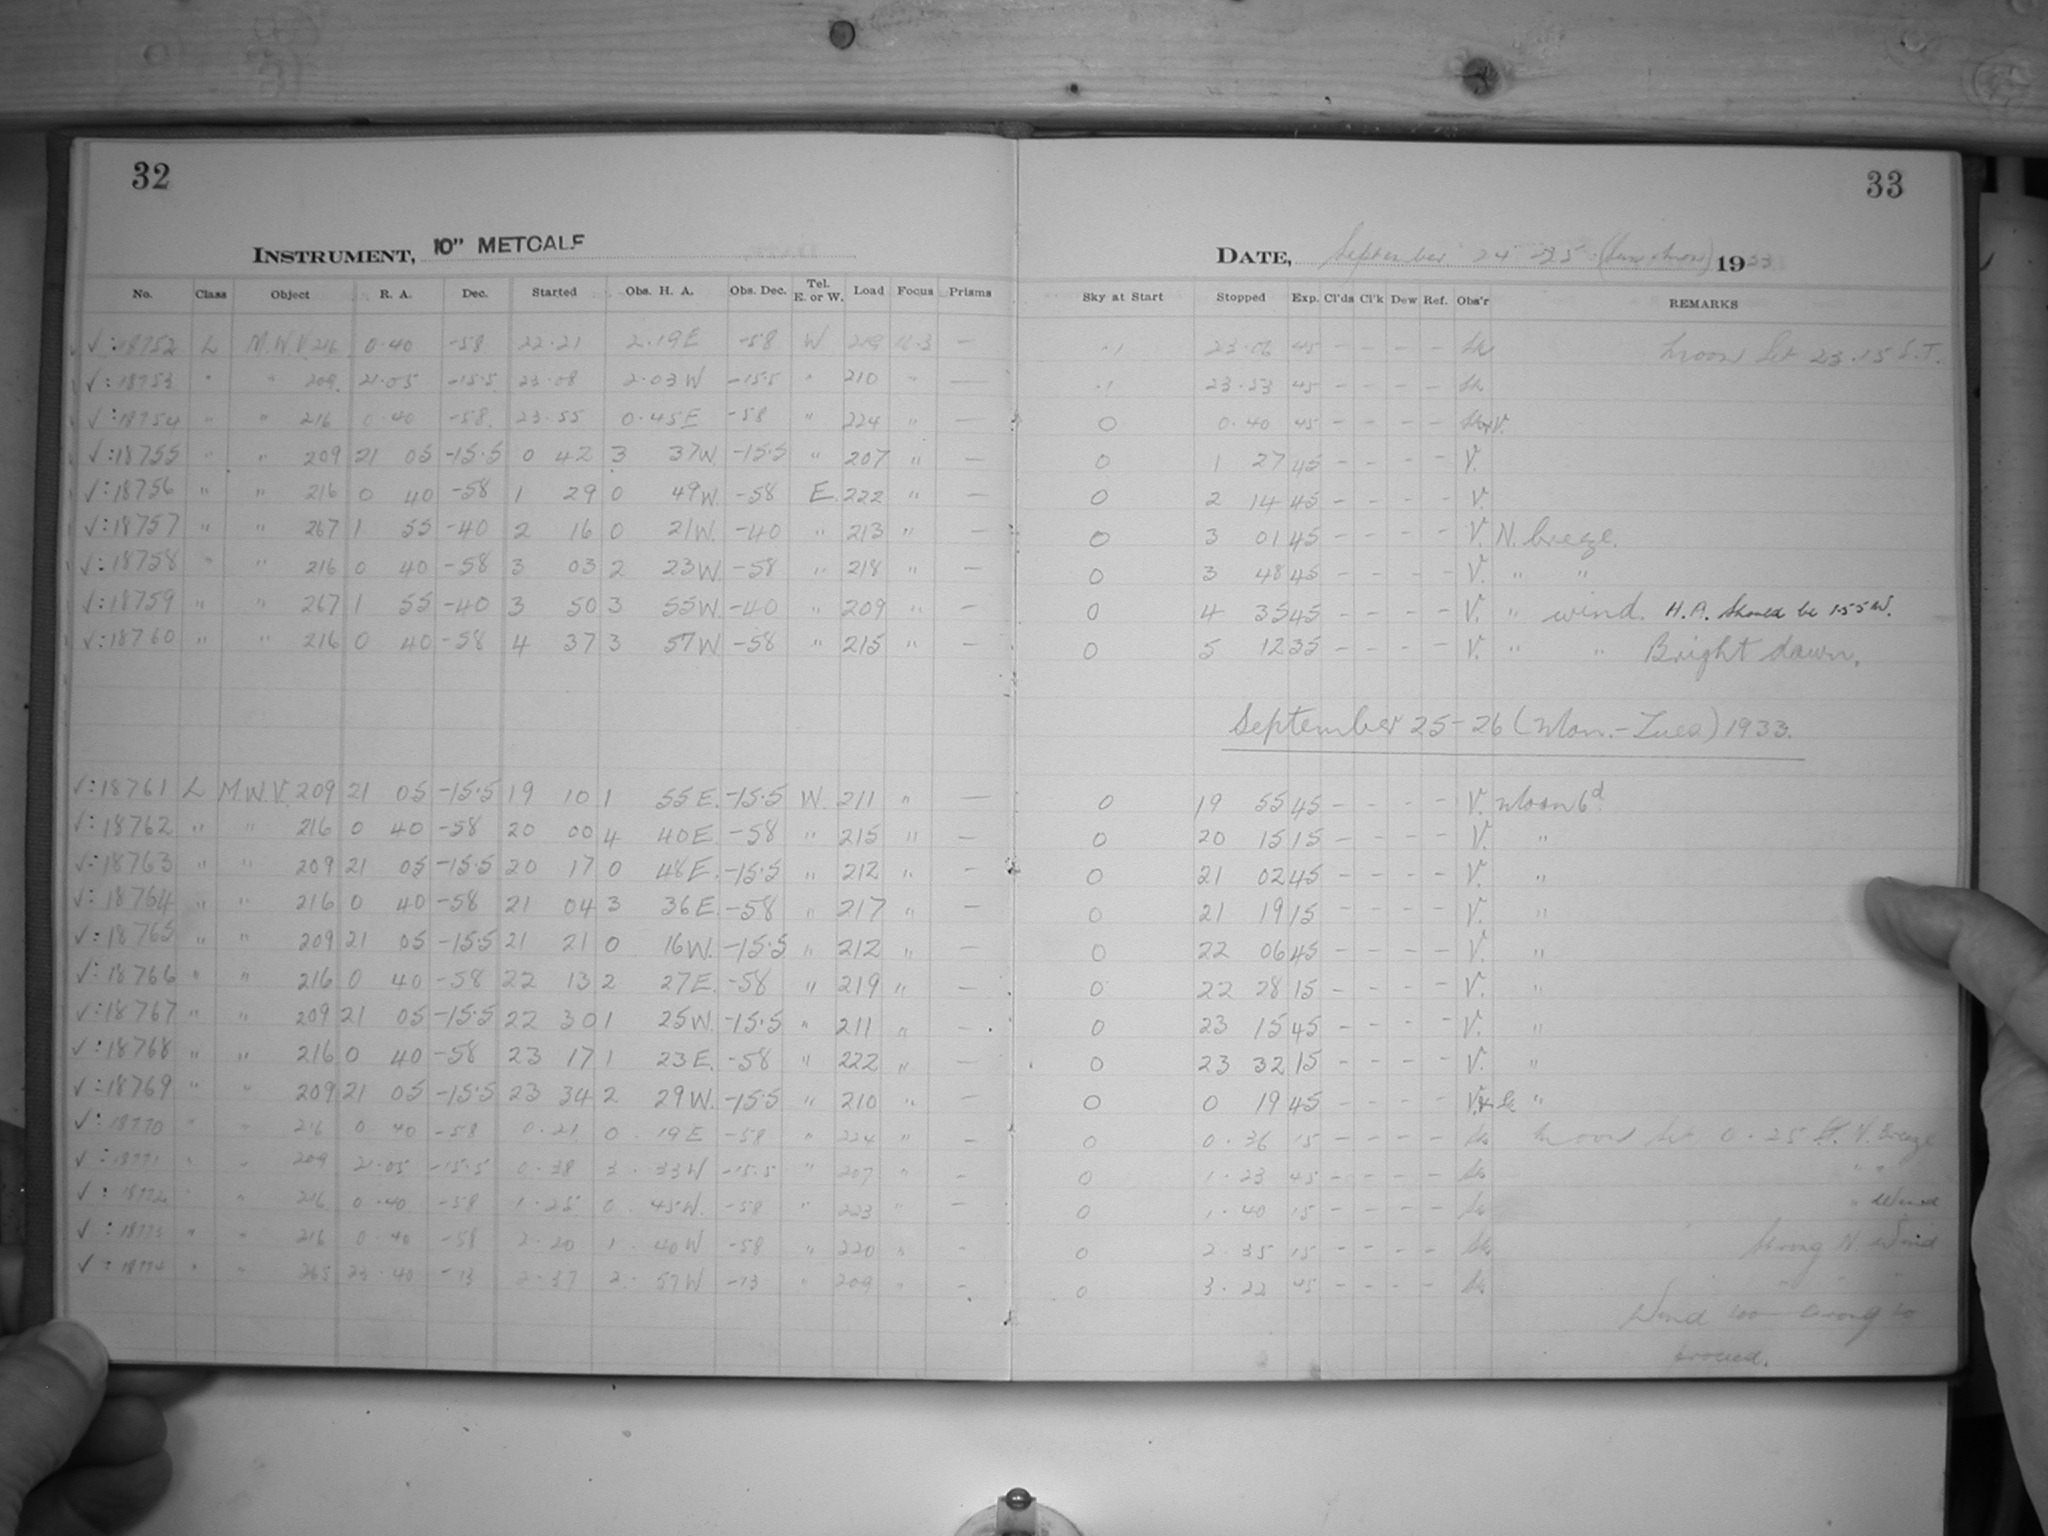 32
33
INSTRUMENT, 10" METCALF
DATE, September 24-25 (Sun-Mon) 1933
No. Class Object R. A. Dec. Started Obs. H. A. Obs. Dec. Tel. E. or W. Load Focus Prisms Sky at Start Stopped Exp. Cl'ds Cl'k Dew Ref. Obs'r REMARKS
√:18752 L M.W.V. 216 0.40 -58 22.21 2.19E -58 W 219 — .1 23.06 45 - - - - Moon Set 23.15 S.T.
√:18753 " " 209 21.05 -15.5 23.08 2.03W -15.5 " 210 " — .1 23.53 45 - - - -
√:18754 " " 216 0.40 -58 23.55 0.45E -58 " 224 " — 0 0.40 45 - - - -
√:18755 " " 209 21 05 -15.5 0 42 3 37W. -15.5 " 207 " — 0 1 27 45 - - - - V.
√:18756 " " 216 0 40 -58 1 29 0 49W. -58 E. 222 " — 0 2 14 45 - - - - V.
√:18757 " " 267 1 55 -40 2 16 0 21W. -40 " 213 " — 0 3 01 45 - - - - V. N. breeze.
√:18758 " " 216 0 40 -58 3 03 2 23W. -58 " 218 " — 0 3 48 45 - - - - V. " "
√:18759 " " 267 1 55 -40 3 50 3 55W. -40 " 209 " — 0 4 35 45 - - - - V. " wind. H.A. Should be 1 55 W.
√:18760 " " 216 0 40 -58 4 37 3 57W -58 " 215 " — 0 5 12 35 - - - - V. " " Bright dawn.
September 25-26 (Mon.-Tues) 1933.
√:18761 L M.W.V. 209 21 05 -15.5 19 10 1 55E. -15.5 W. 211 " — 0 19 55 45 - - - - V. Moon 6d
√:18762 " " 216 0 40 -58 20 00 4 40E. -58 " 215 " — 0 20 15 15 - - - - V. "
√:18763 " " 209 21 05 -15.5 20 17 0 48E. -15.5 " 212 " — 0 21 02 45 - - - - V. "
√:18764 " " 216 0 40 -58 21 04 3 36E. -58 " 217 " — 0 21 19 15 - - - - V. "
√:18765 " " 209 21 05 -15.5 21 21 0 16W. -15.5 " 212 " — 0 22 06 45 - - - - V. "
√:18766 " " 216 0 40 -58 22 13 2 27E. -58 " 219 " — 0 22 28 15 - - - - V. "
√:18767 " " 209 21 05 -15.5 22 30 1 25W. -15.5 " 211 " — 0 23 15 45 - - - - V. "
√:18768 " " 216 0 40 -58 23 17 1 23E. -58 " 222 " — 0 23 32 15 - - - - V. "
√:18769 " " 209 21 05 -15.5 23 34 2 29W. -15.5 " 210 " — 0 0 19 45 - - - - "
√:18770 " " 216 0 40 -58 0.21 0.19E -58 " 224 " — 0 0.36 15 - - - - Moon Set 0.25 Breeze
√:18771 " " 209 21.05 -15.5 0.38 3.33W -15.5 " 207 " — 0 1.23 45 - - - - " "
√:18772 " " 216 0.40 -58 1.25 0.45W. -58 " 223 " — 0 1.40 15 - - - - " Wind
√:18773 " " 216 0.40 -58 2.20 1.40W -58 " 220 " - 0 2.35 15 - - - - Strong N. Wind
√:18774 " " 265 23.40 -13 2.37 2.57W -13 " 209 " - 0 3.22 45 - - - - " " "
Wind too strong to
proceed.